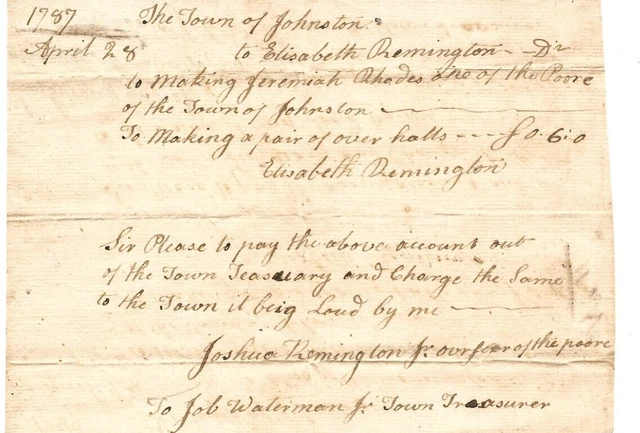 1787 The Town of Johnston
April 28 to Elisabeth Remington - Dr
to Making Jeremiah Rhodes one of the Poore
of the Town of Johnston
To Making a pair of over halls - - - £0. 6: 0
Elisabeth Remington
Sir Please to pay the above account out
of the Town Teasuary and Charge the Same
to the Town it beig Loud by me
Joshua Remington Jr. overseer of the poore
To Job Waterman Jr Town Treasurer